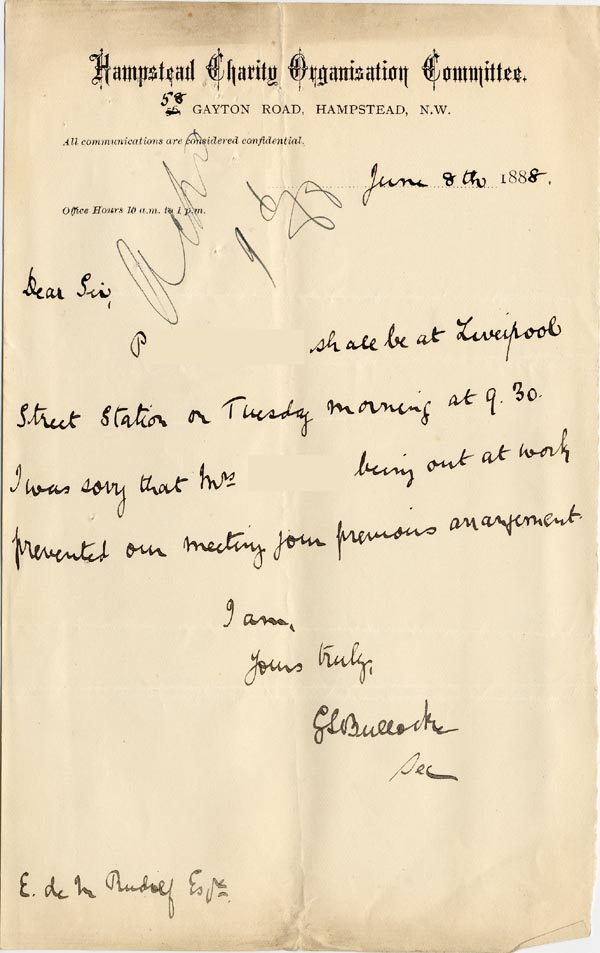 Hampstead Charity Organisation Committee.
58
GAYTON ROAD, HAMPSTEAD, N.W.
All communications are considered confidential.
June 8th 1888.
Office Hours 10 a.m. to 1 p.m.
Dear Sir,
P shall be at Liverpool
Street Station on Tuesday morning at 9.30.
I was sorry that Mrs being out at work
prevented our meeting your previous arrangement.
I am,
Yours truly,
GSBullock
Sec
E. de M Rudolf Esqre.